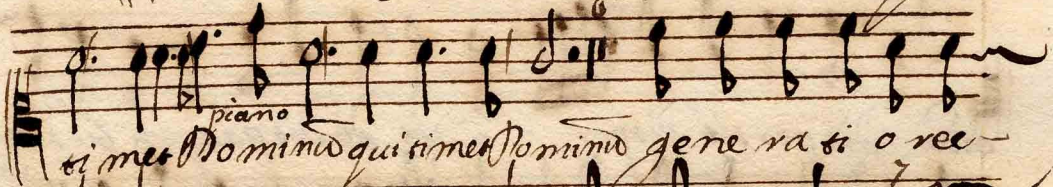 6
piano
ti met Dominũ qui timet Dominũ gene ra ti o rec-
7